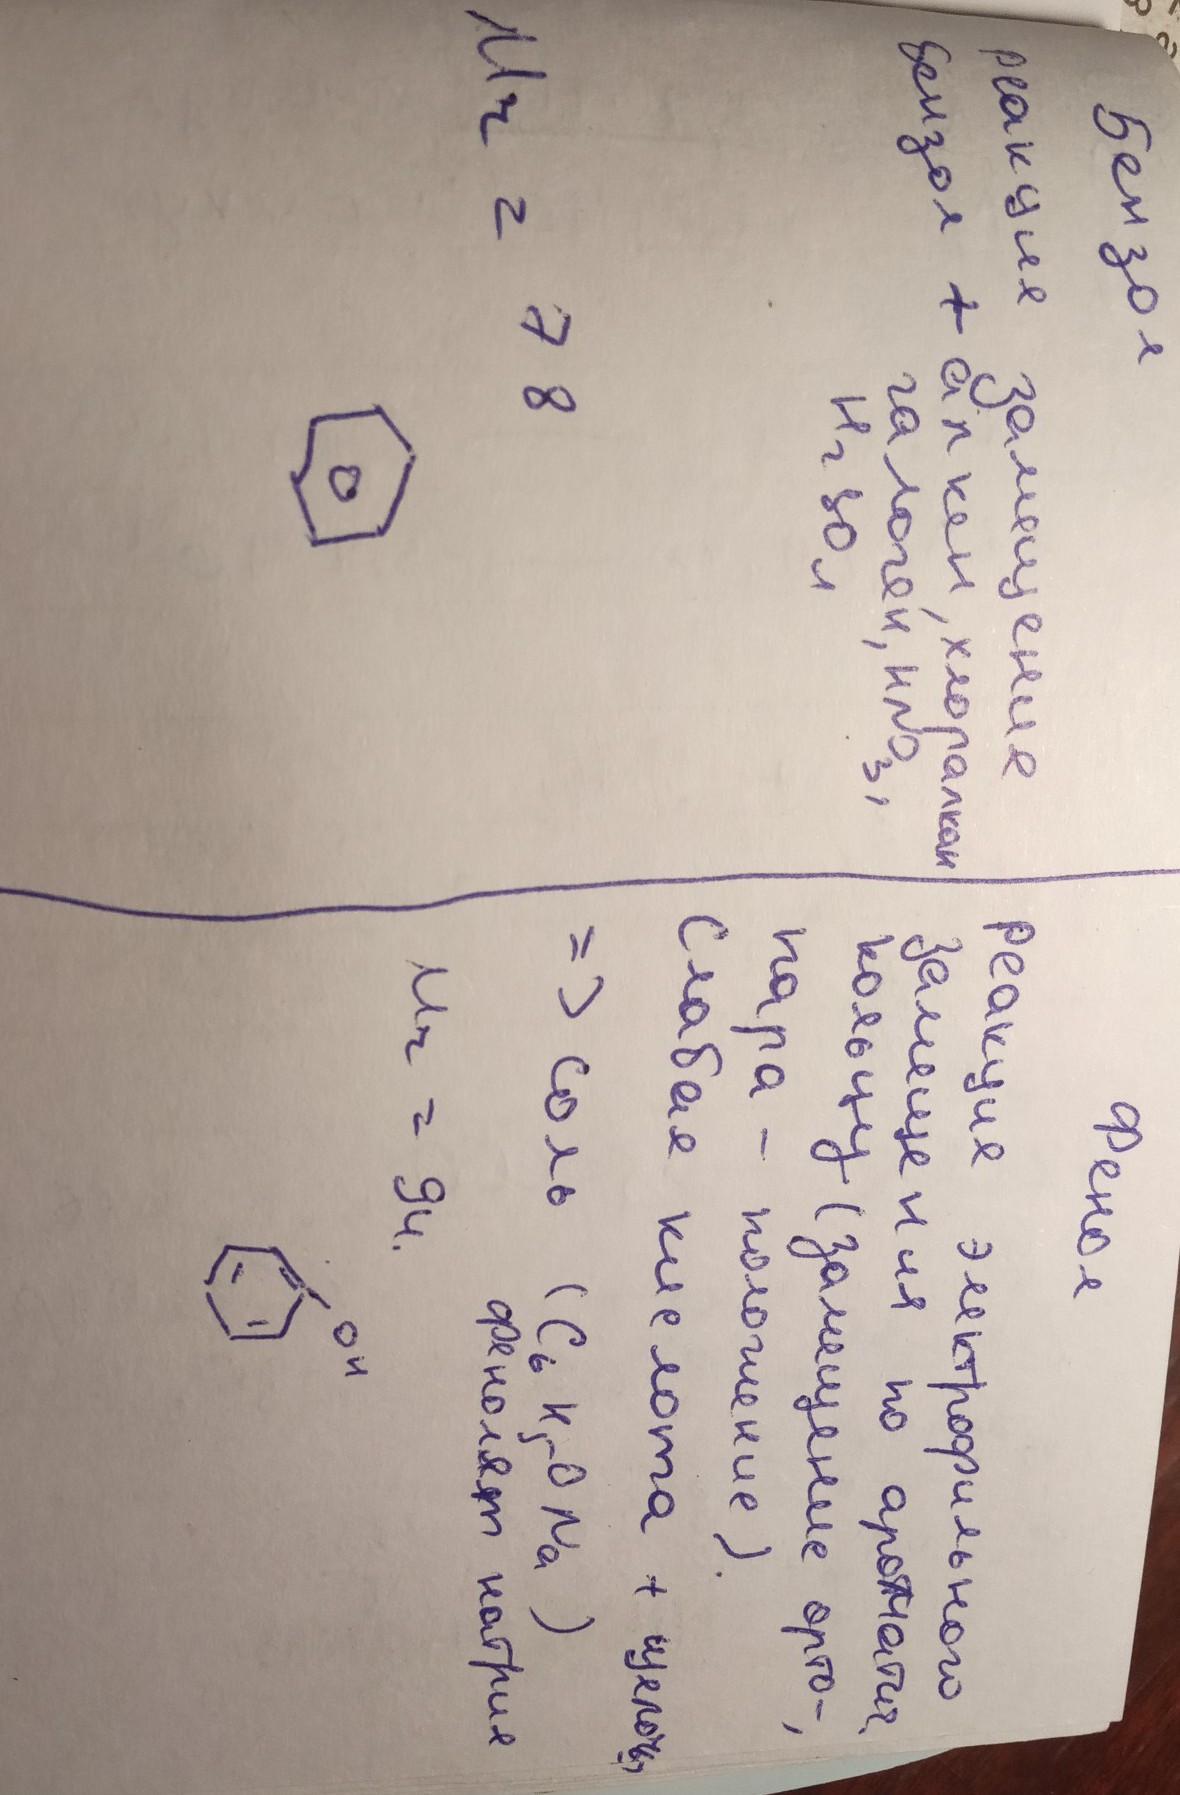 Бензол
реакция замещение
бензол + алкен, хлоралкан
галоген, HNO3,
H2SO4
Mr = 78
Фенол
реакция электрофильного
замещения по ароматич.
кольцу (замещение орто-,
пара - положение).
Слабая кислота + щелочь,
=> соль (C6H5ONa)
фенолят натрия
Mr = 94.
OH